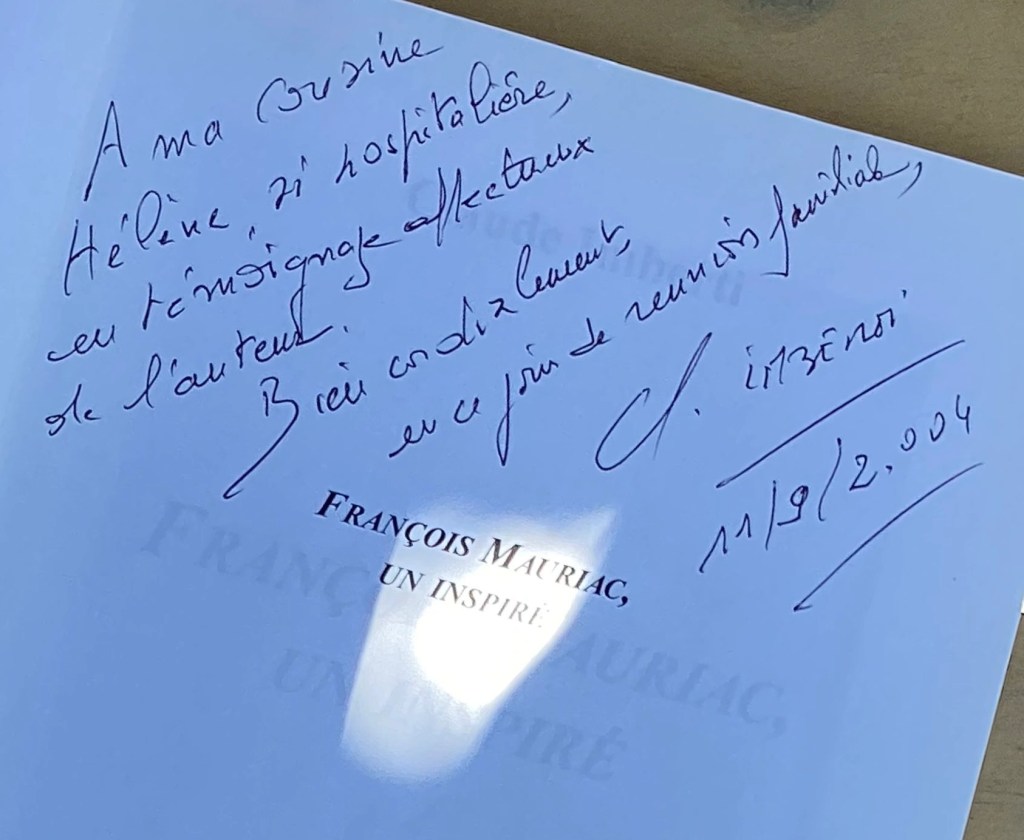 A ma cousine
Hélène, si hospitalière,
en témoignage affectueux
de l'auteur.
Bien cordialement,
en ce jour de réunion familiale,
Cl. IMBERTI
11/9/2.004
FRANÇOIS MAURIAC,
UN INSPIRÉ
Claude Imberti
FRANÇOIS MAURIAC,
UN INSPIRÉ